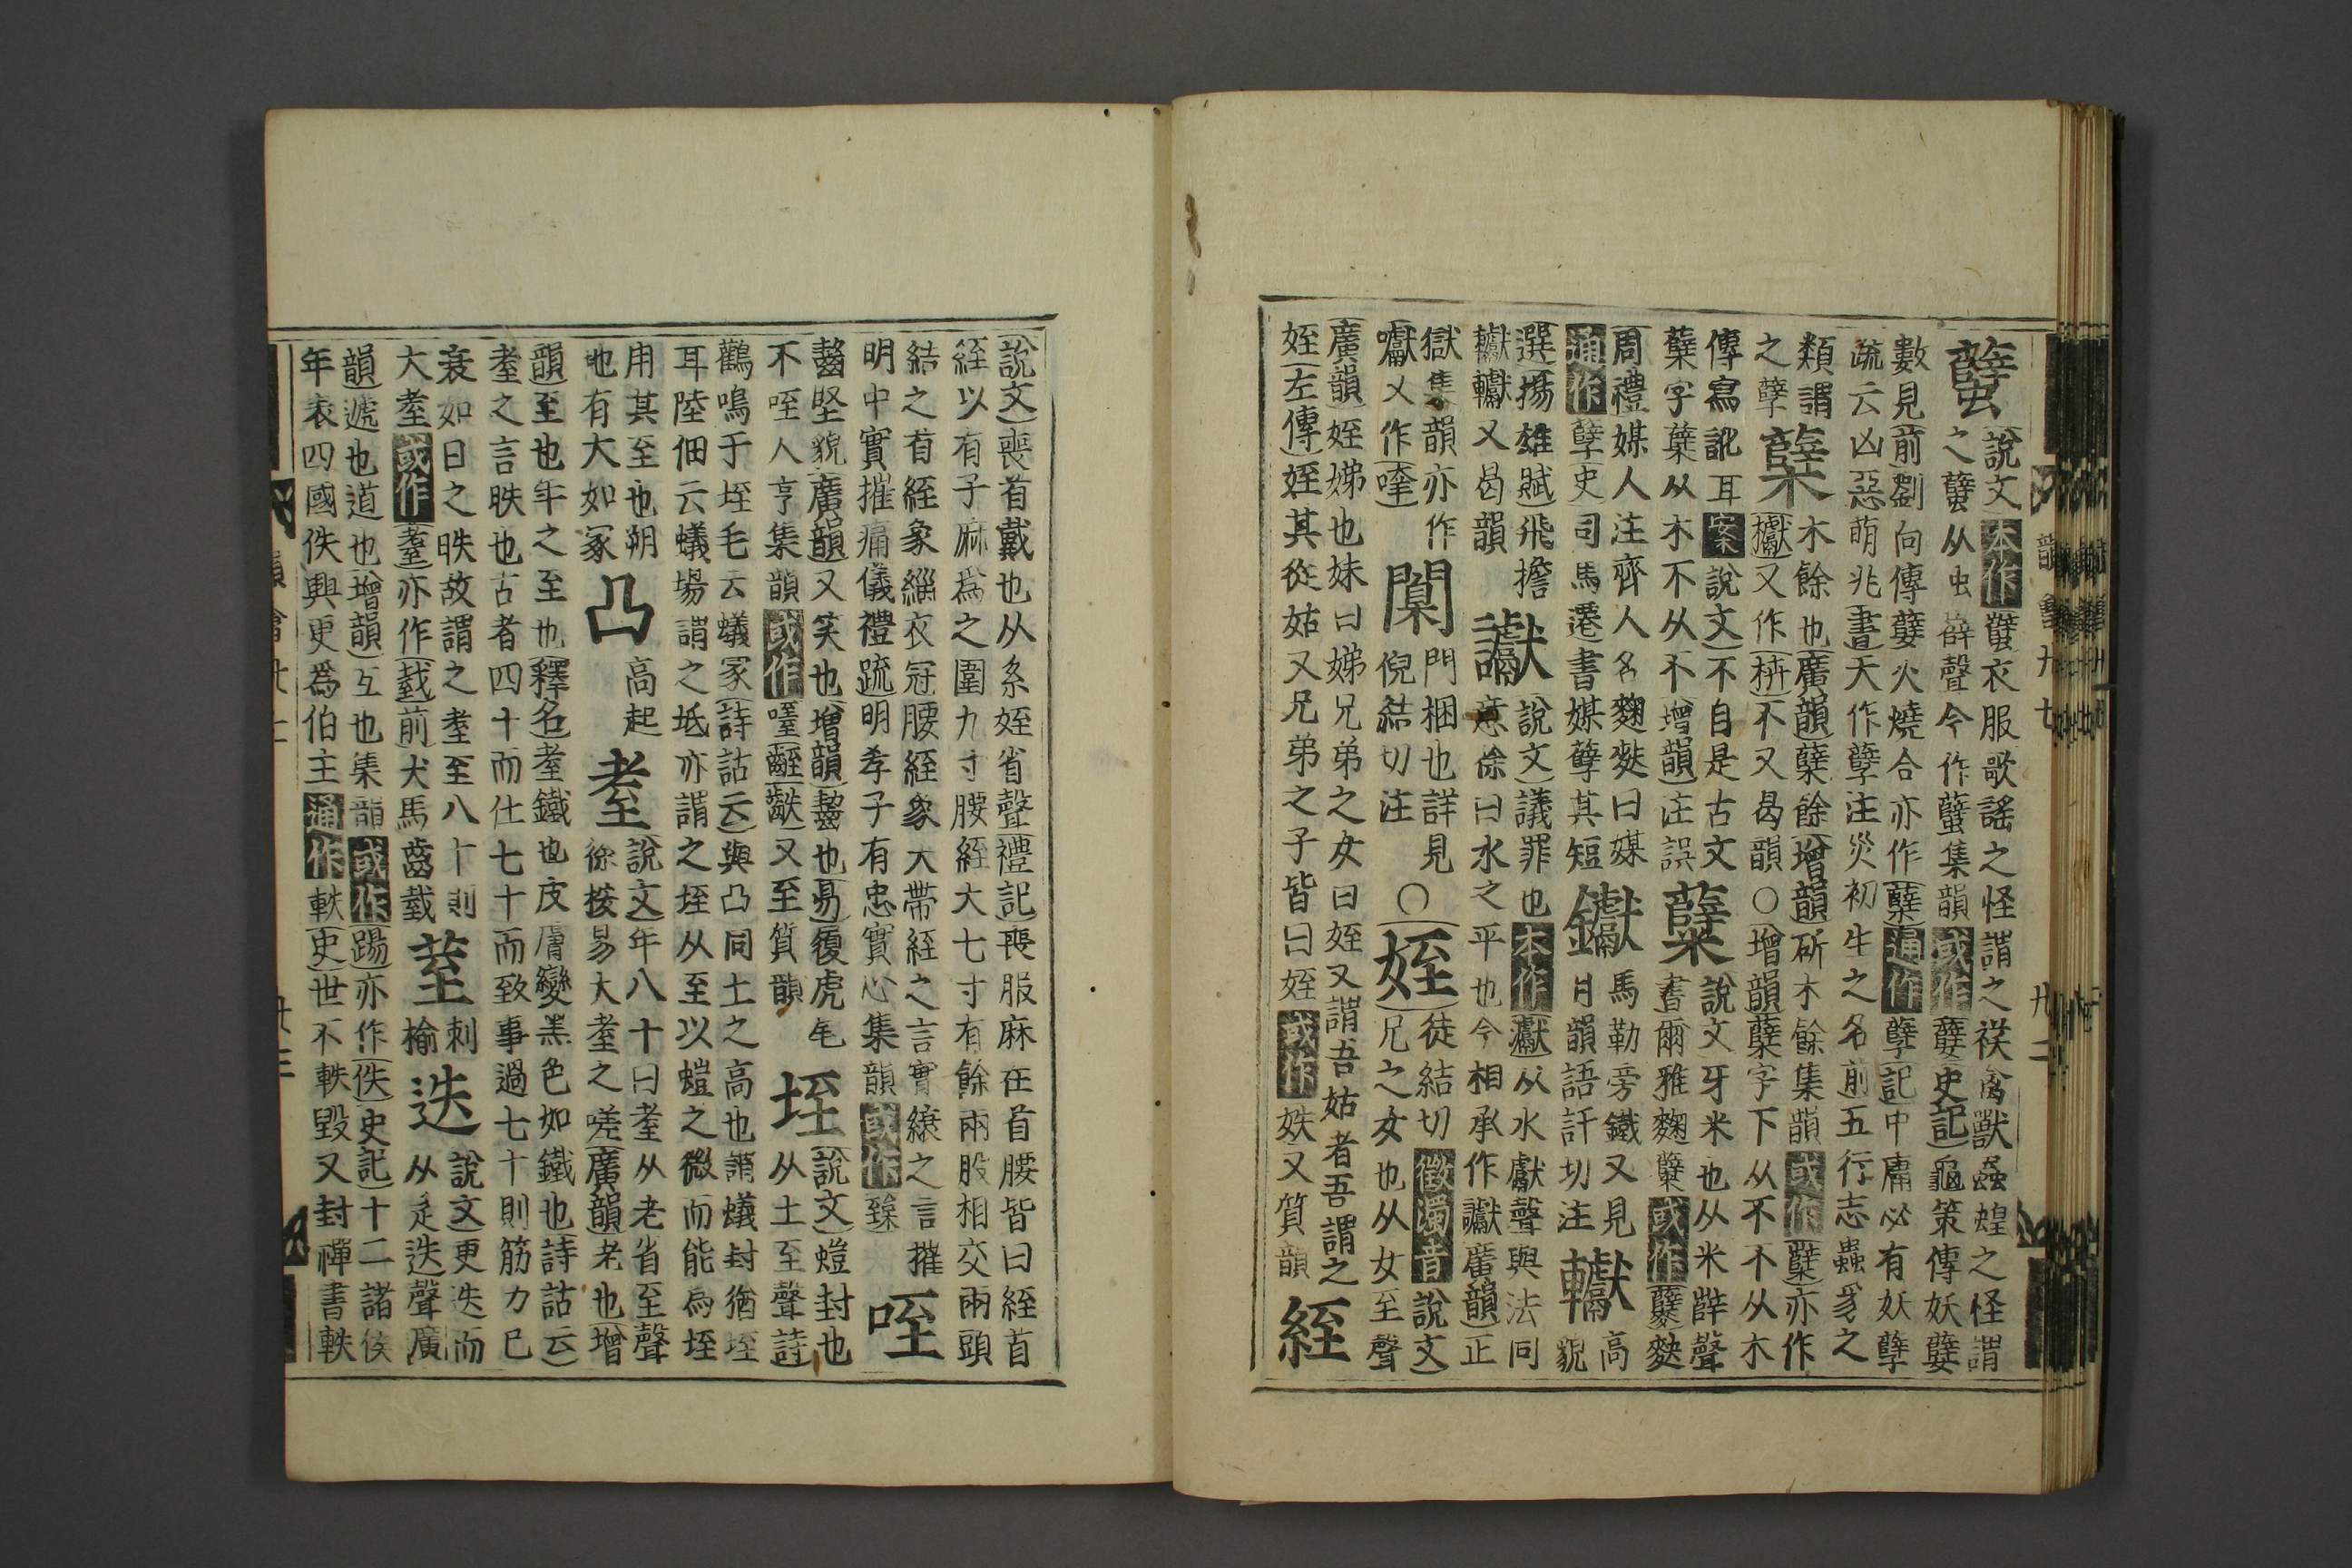 蠥
說文本作蠥衣服歌謠之怪謂之祅禽獸蟲蝗之怪謂
之蠥从虫辥聲今作蠥集韻或作孼史記龜策傳妖孼
數見前劉向傳孼火燒合亦作孽通作孽記中庸必有妖孽
疏云凶惡萌兆書天作孽注災初生之名前五行志蟲豸之
類謂
之孽
櫱
木餘也廣韻櫱餘增韻斫木餘集韻或作櫱亦作
𣡌又作枿不又曷韻○增韻櫱字下从不不从木
傳寫訛耳案說文不自是古文
櫱字櫱从木不从不增韻注誤
糱
說文牙米也从米辥聲
書爾雅麴糱或作糵麩
周禮媒人注齊人名麴麩曰媒
通作孽史司馬遷書媒孽其短
钀
馬勒旁鐵又見
月韻語訐切注
轥
高
貌
選揚雄賦飛擔
轥轥又曷韻
讞
說文議罪也本作瀗从水獻聲與法同
意徐曰水之平也今相承作讞廣韻正
獄集韻亦作
㘔又作㙜
闑
門梱也詳見
倪結切注
○姪
徒結切徵濁音說文
兄之女也从女至聲
廣韻姪娣也妹曰娣兄弟之女曰姪又謂吾姑者吾謂之
姪左傳姪其從姑又兄弟之子皆曰姪或作妷又質韻
絰
韻會廿七
廿二
說文喪首戴也从糸姪省聲禮記喪服麻在首腰皆曰絰首
絰以有子麻爲之圍九寸腰絰大七寸有餘兩股相交兩頭
結之首絰象緇衣冠腰絰象大帶絰之言實縗之言摧
明中實摧痛儀禮疏明孝子有忠實心集韻或作䋢
咥
齧堅貌廣韻又笑也增韻齧也易履虎尾
不咥人亨集韻或作㗧齛又至質韻
垤
說文螘封也
从土至聲詩
鸛鳴于垤毛云蟻冢詩詁云與凸同土之高也謂蟻封猶垤
耳陸佃云蟻場謂之坻亦謂之垤从至以螘之微而能爲垤
用其至也朔
也有大如冢
凸
高起
耊
說文年八十曰耊从老省至聲
徐按易大耊之嗟廣韻老也增
韻至也年之至也釋名耊鐵也皮膚變黑色如鐵也詩詁云
耊之言昳也古者四十而仕七十而致事過七十則筋力已
衰如日之昳故謂之耊至八十則
大耊或作耋亦作載前犬馬齒載
荎
刺
榆
迭
說文更迭而
从辵迭聲廣
韻遞也道也增韻互也集韻或作踢亦作佚史記十二諸侯
年表四國佚興更爲伯主通作軼史世不軼毀又封禪書軼
韻會廿七
廿三